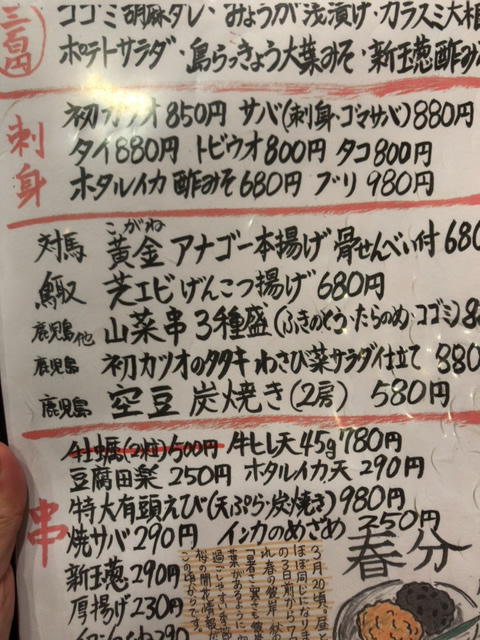 三百円
コゴミ胡麻ダレ・みょうが浅漬け・カラスミ大根
ポテトサラダ・島らっきょう大葉みそ・新玉葱酢み
刺身
初カツオ850円 サバ(刺身・ゴマサバ)880円
タイ880円 トビウオ800円 タコ800円
ホタルイカ酢みそ680円 ブリ980円
こがね
対馬 黄金アナゴ一本揚げ 骨せんべい付 680
芝エビげんこつ揚げ 680円
鹿児島他 山菜串3種盛(ふきのとう・たらのめ・コゴミ)
鹿児島 初カツオのタタキ わさび菜サラダ仕立て 880
鹿児島 空豆 炭焼き(2房) 580円
串
牡蠣(2粒)500円 牛ヒレ天45g780円
豆腐田楽250円 ホタルイカ天290円
特大有頭えび(天ぷら・炭焼き)980円
焼サバ290円 インカのめざめ 250円
新玉葱290円
厚揚げ230円
春分
3月20頃。昼
ほぼ同じになります
の3日前から